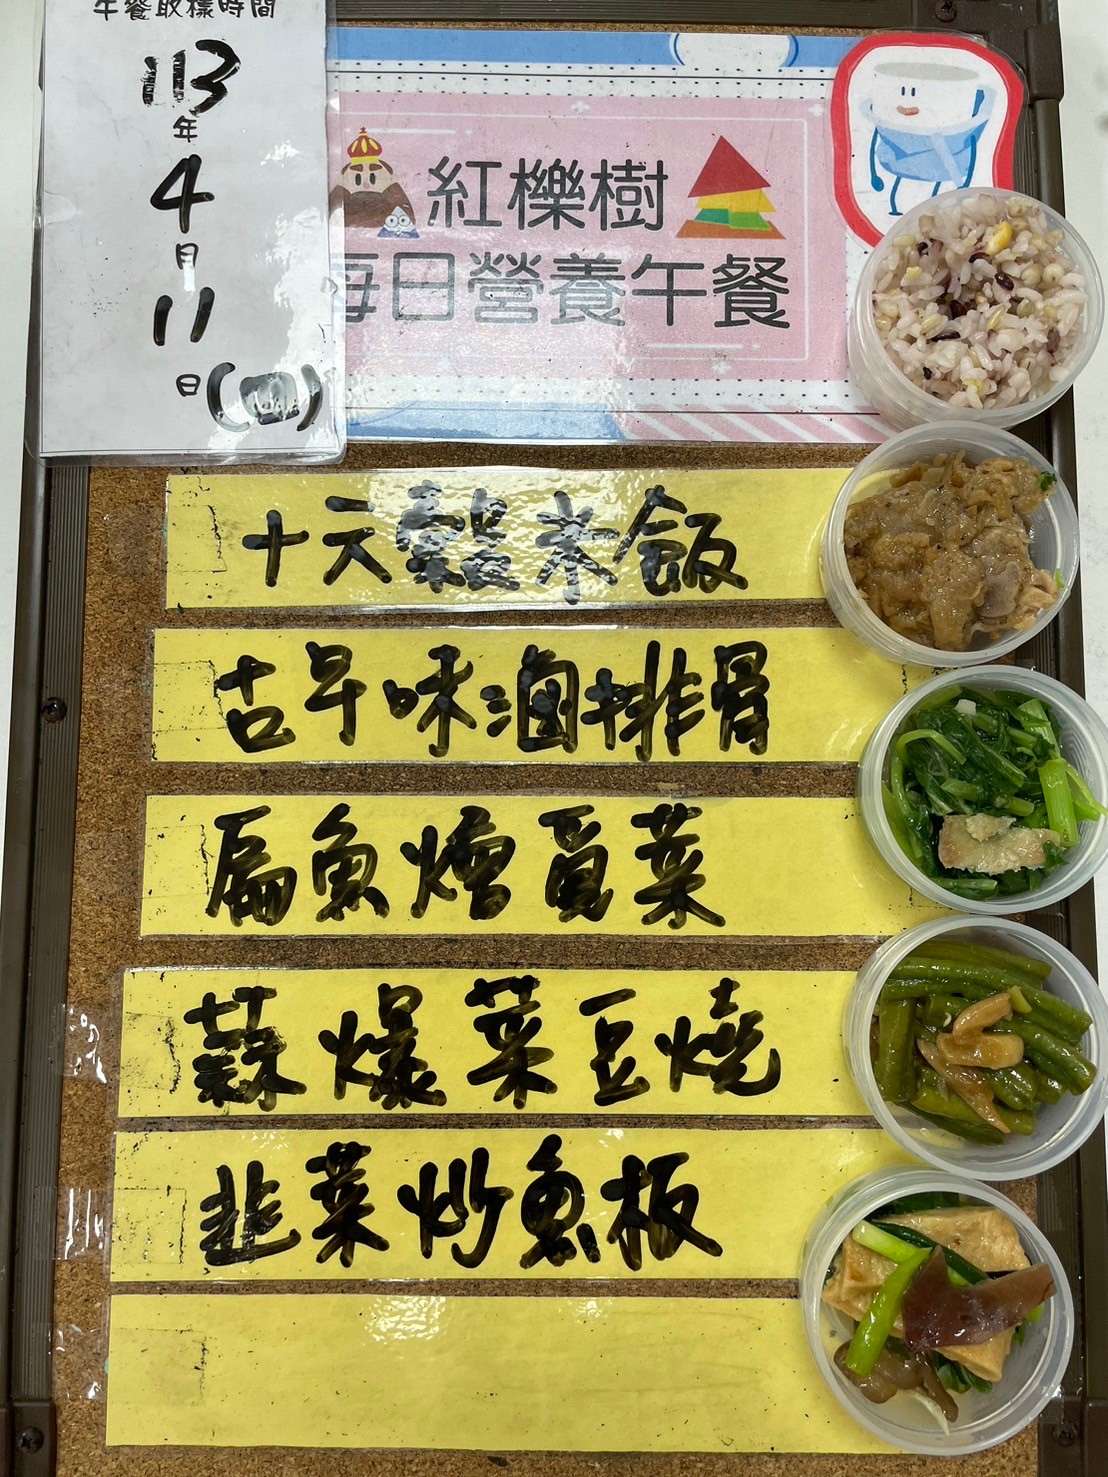 午餐取樣時間
113
年
4
月
11
日(四)
紅櫟樹
每日營養午餐
十六穀米飯
古早味滷排骨
扁魚燴莧菜
蒜爆菜豆燒
韭菜炒魚板